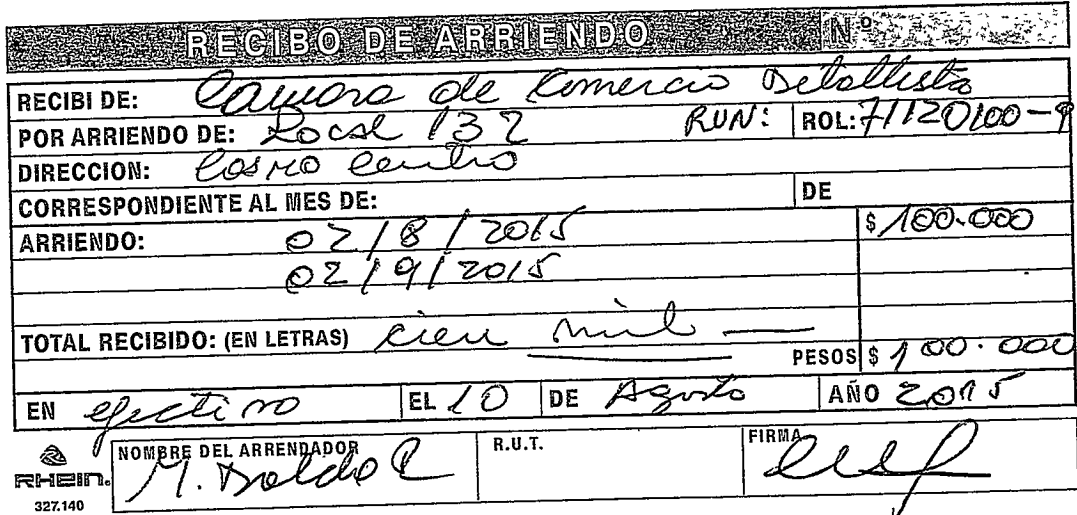 RECIBO DE ARRIENDO Nº
RECIBI DE: Camara de Comercio Detallista
POR ARRIENDO DE: Local 132 RUN: ROL: 71120100-9
DIRECCION: Cosmo Centro
CORRESPONDIENTE AL MES DE: DE
ARRIENDO: 02/8/2015 $ 100.000
02/9/2015
TOTAL RECIBIDO: (EN LETRAS) cien mil
PESOS $ 100.000
EN efectivo EL 10 DE Agosto AÑO 2015
NOMBRE DEL ARRENDADOR R.U.T. FIRMA
M.
RHEIN.
327.140